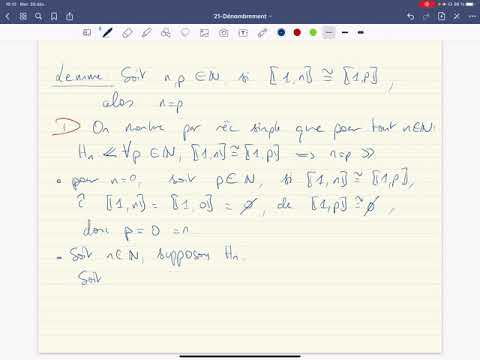 21-Dénombrement
Lemme: Soit n,p ∈ ℕ, si ⟦1,n⟧ ≅ ⟦1,p⟧,
alors n=p
D On montre par réc simple que pour tout n∈ℕ:
Hn « ∀p ∈ ℕ, ⟦1,n⟧ ≅ ⟦1,p⟧ ⟹ n=p »
• pour n=0, soit p∈ℕ, si ⟦1,n⟧ ≅ ⟦1,p⟧,
⟦1,n⟧ = ⟦1,0⟧ = ∅, de ⟦1,p⟧ ≅ ∅,
donc p=0=n
• Soit n∈ℕ, supposons Hn.
Soit